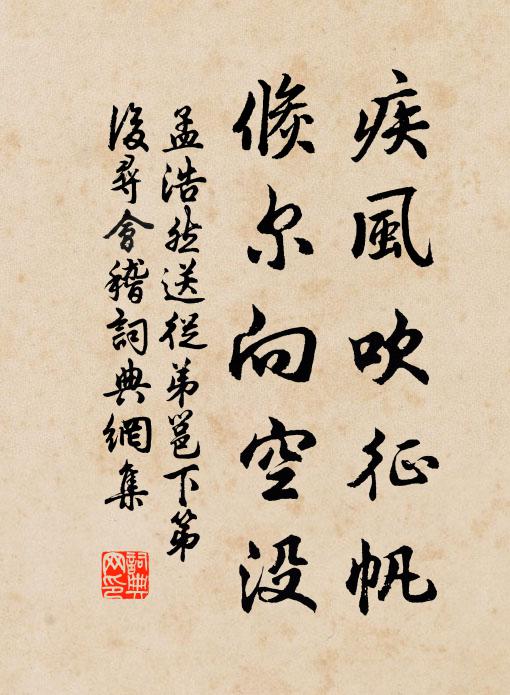 疾風吹征帆
倐尔向空没
孟浩然送從弟邕下第
後尋會稽詞典網集
詞典
网印